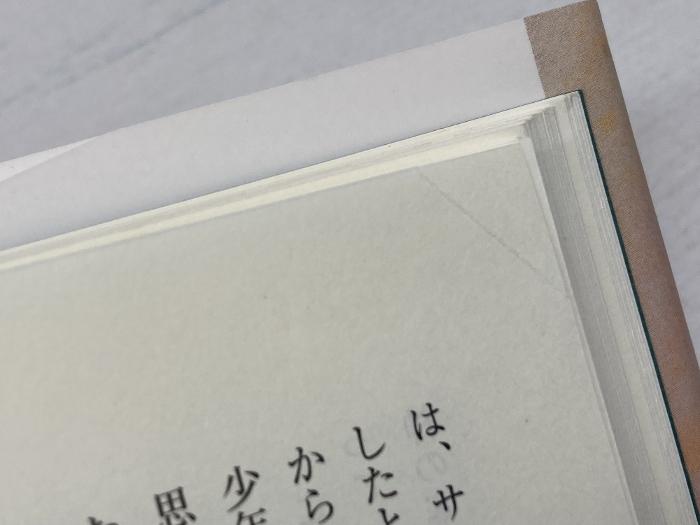 は、サ
したと
から
少年
思